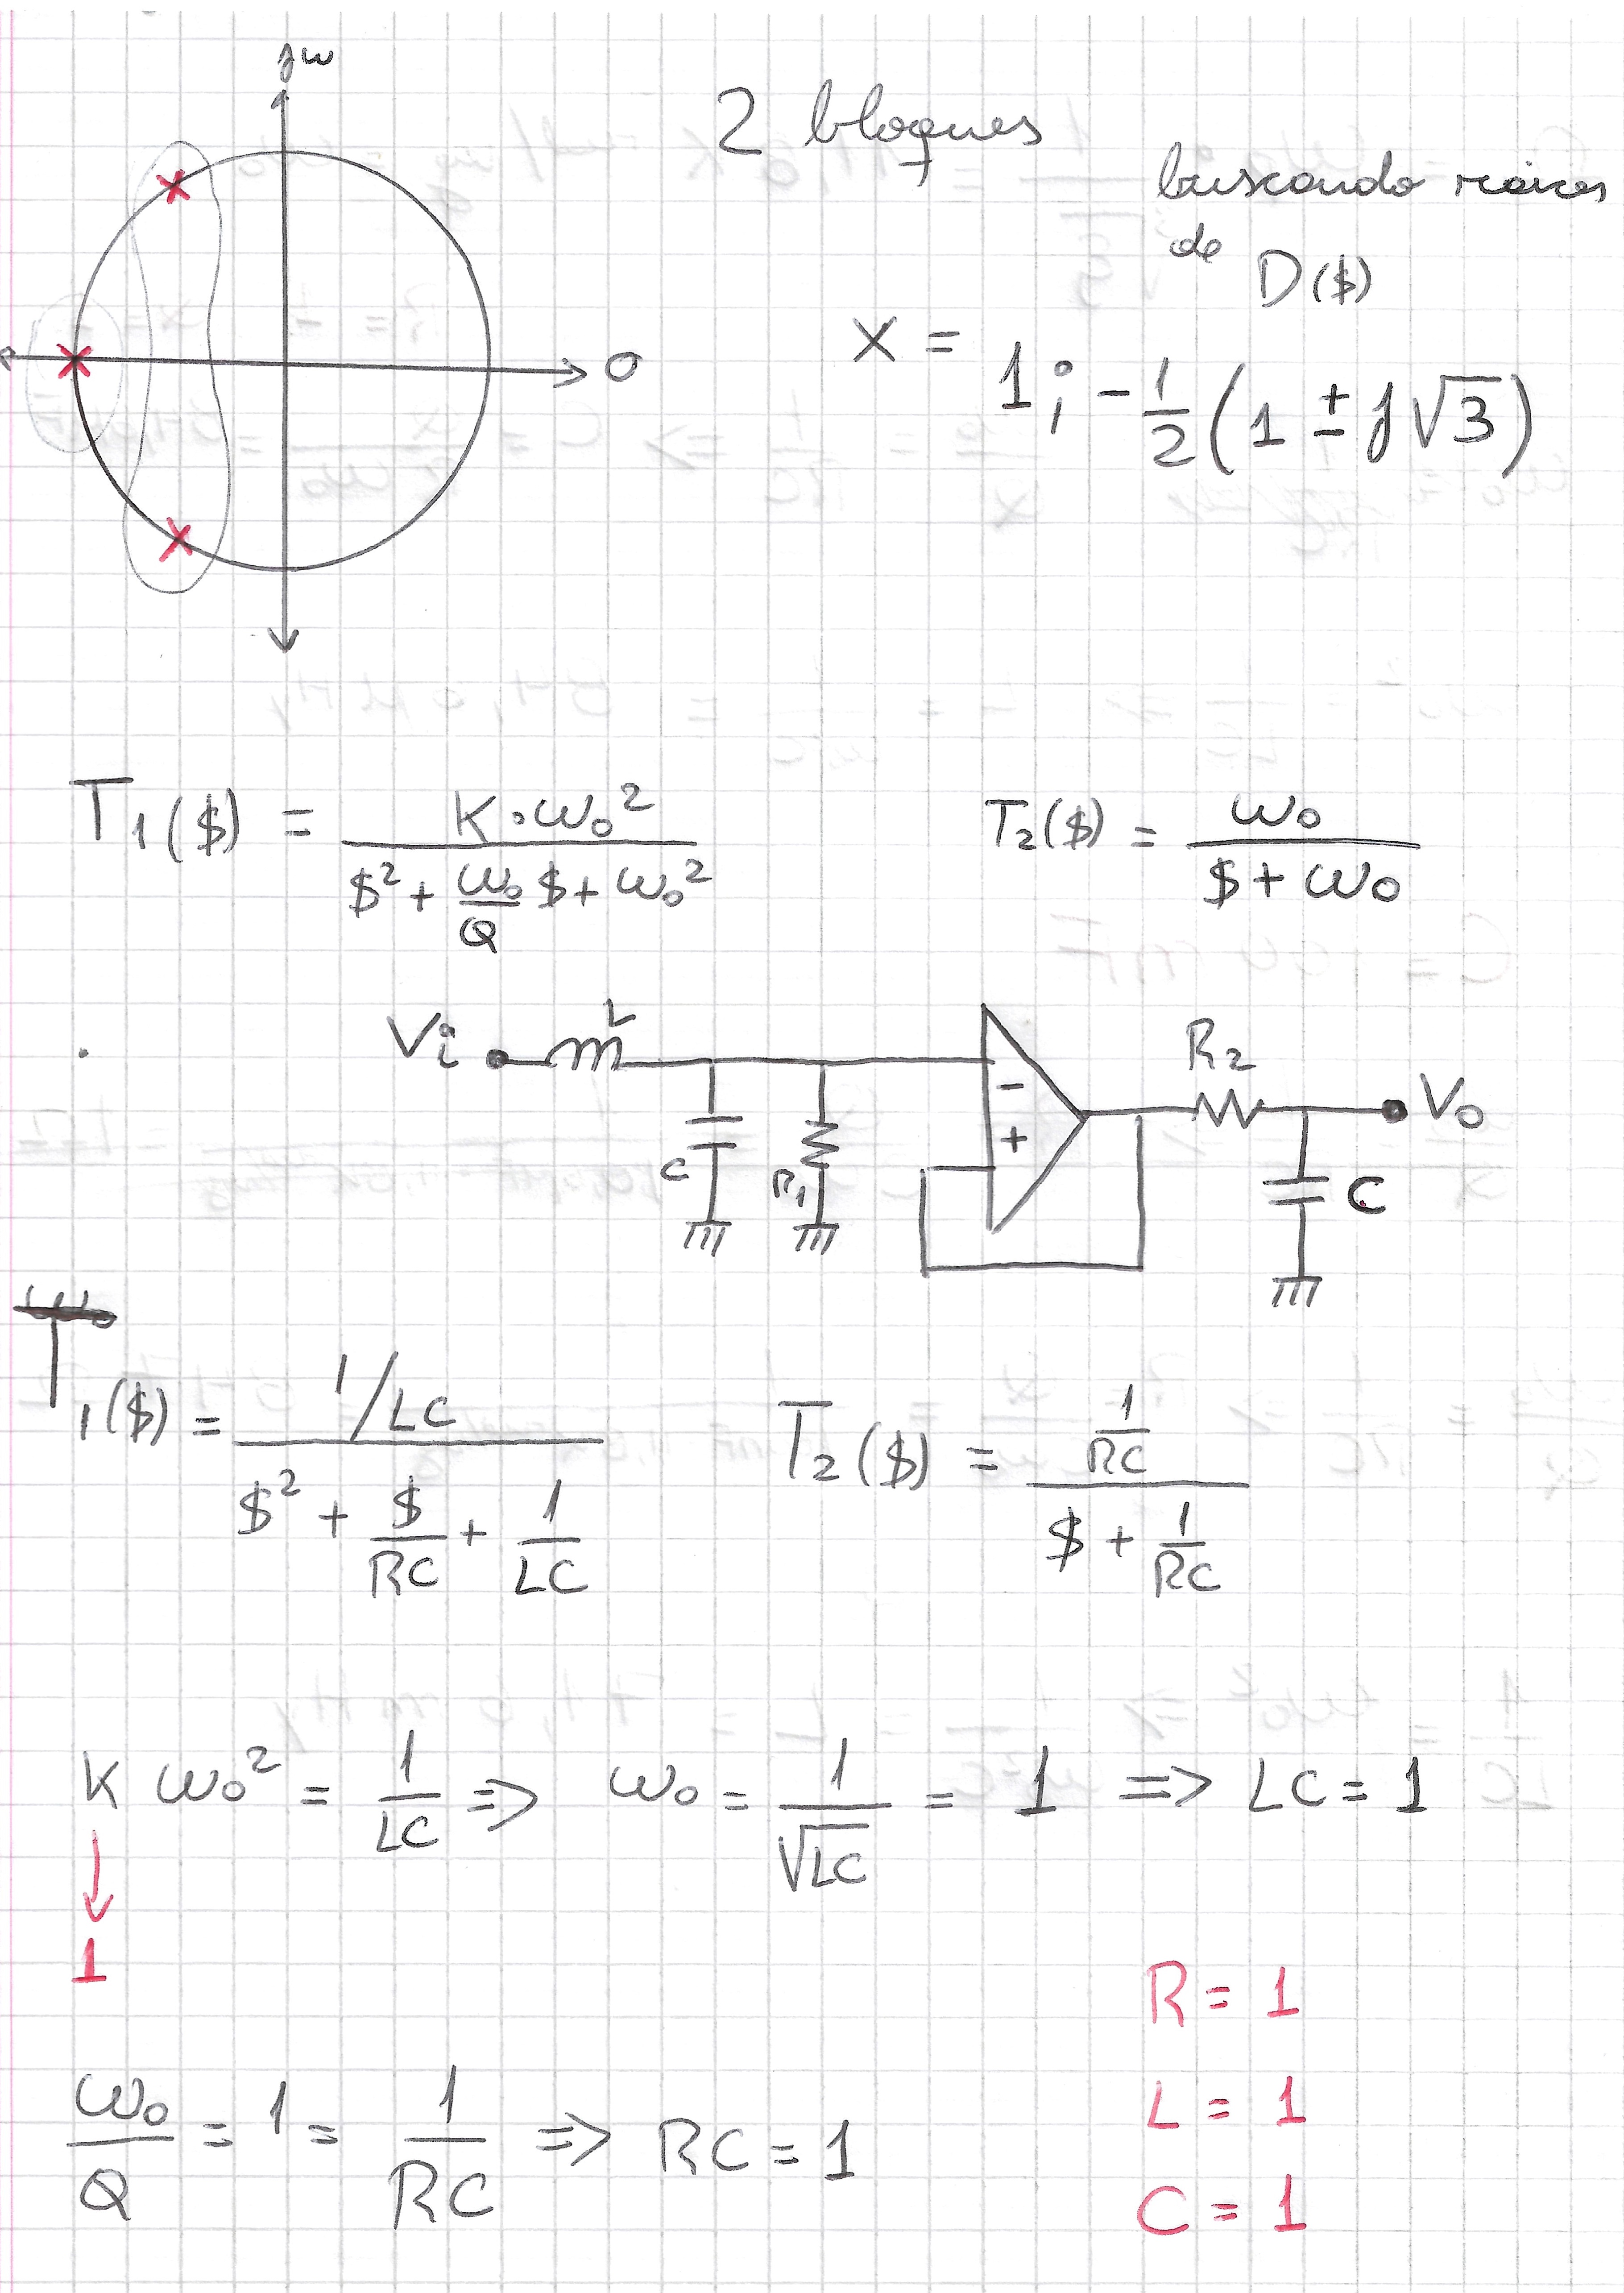 jω
2 bloques
buscando raices
de D($)
σ
X = 1; -1/2 (1 ± j√3)
T1($) = K·ω0² / ($² + ω0/Q $ + ω0²)
T2($) = ω0 / ($ + ω0)
Vi L C R1 - + R2 C Vo
T1($) = 1/LC / ($² + $/RC + 1/LC)
T2($) = 1/RC / ($ + 1/RC)
K ω0² = 1/LC => ω0 = 1/√LC = 1 => LC = 1
↓
1
R = 1
L = 1
ω0/Q = 1 = 1/RC => RC = 1
C = 1